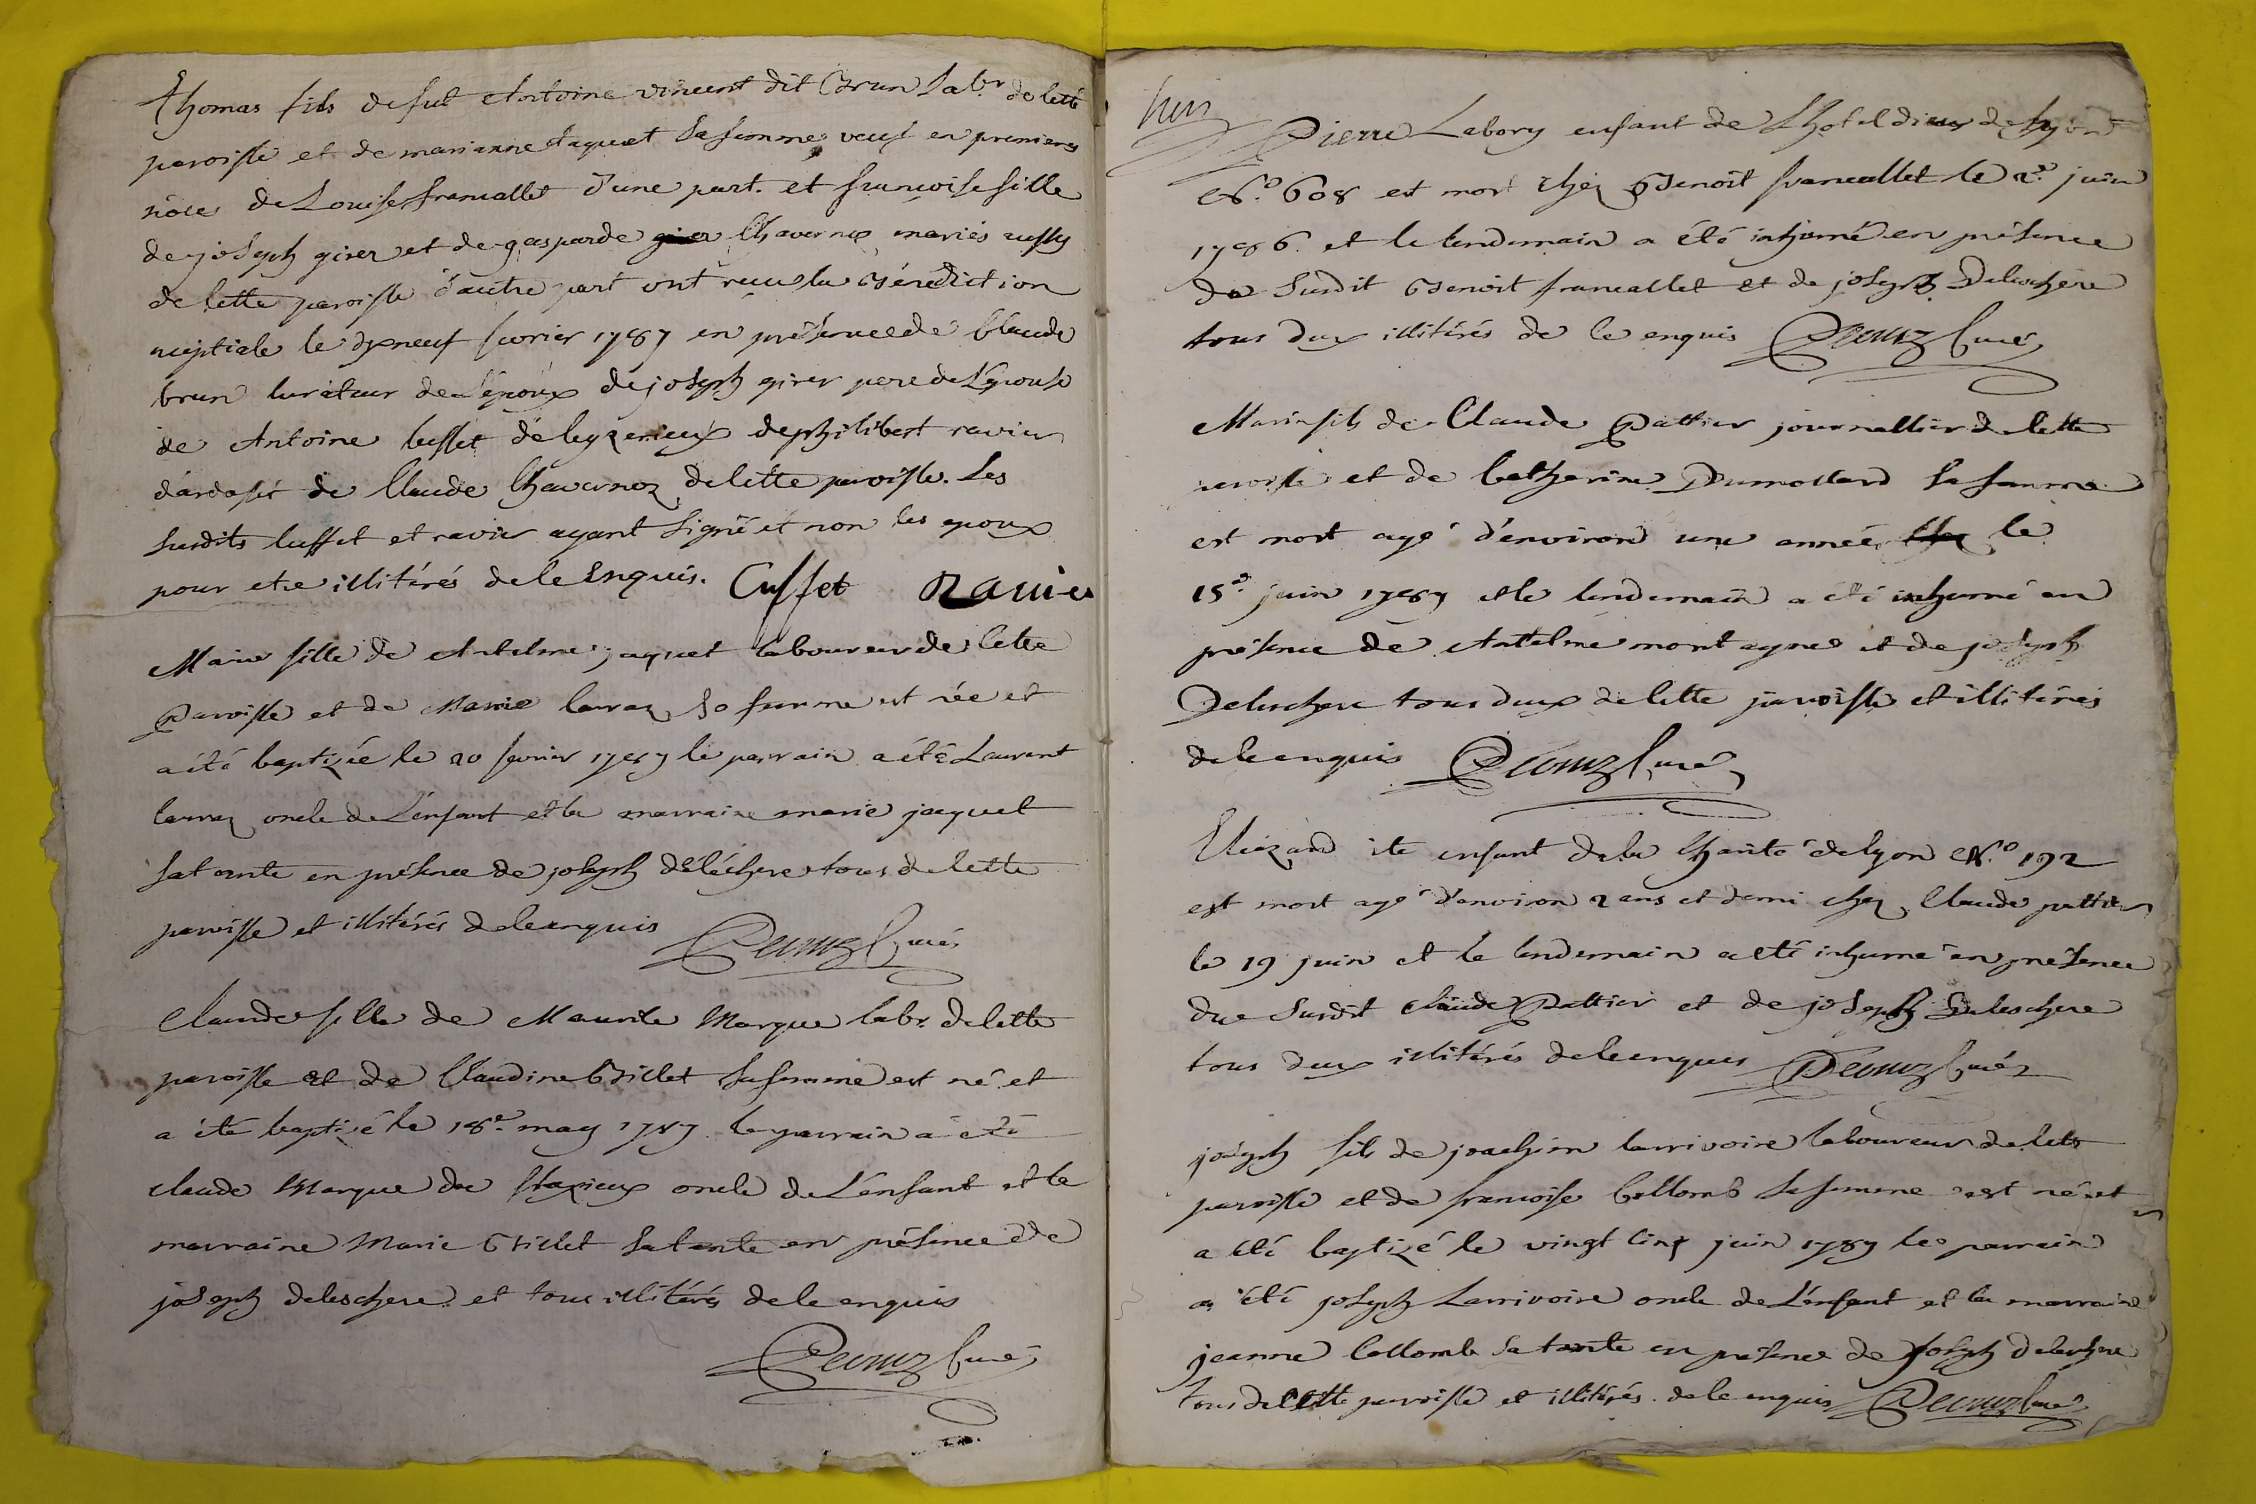 Thomas fils de fut Antoine vincent dit Brun lab.r de cette
paroisse et de marianne Jaquet sa femme, veuf en premieres
nôces de Louise francallet d'une part. et francoise fille
de joseph girer et de gasparde Chavernoz mariés aussy
de cette paroisse d'autre part ont reçu la Bénédiction
nuptiale le dixneuf fevrier 1787 en présence de Claude
brun curateur de L'époux de joseph girer pere de L'épouse
de Antoine Cusset de leyzerieux de philibert ravier
d'ardosit de Claude Chavernoz de cette paroisse. Les
susdits Cusset et ravier ayant signé et non les epoux
pour etre illitérés de ce Enquis. Cusset Ravier
Marie fille de Antelme jaquet laboureur de cette
Paroisse et de Marie larraz sa femme est née et
a été baptizée le 20 fevrier 1787 le parrain a été Laurent
larraz oncle de L'enfant et la marraine marie jaquet
sa tante en présence de joseph délèchere tous de cette
paroisse et illitérés de ce enquis Decruz Curé
Claude fille de Maurile Marque labr. de cette
paroisse et de Claudine Billet sa femme est né et
a été baptizé le 18e. may 1787 le parrain a été
claude Marque de oncle de L'enfant et la
marraine Marie Billet sa tante en présence de
joseph deleschere et tous illitérés de ce enquis
Decruz Curé
Pierre Labory enfant de L'hotel dieu de lyon
N.o 608 est mort chez Benoit francallet le 2.e juin
1786 et le lendemain a été inhumé en présence
de susdit Benoit francallet et de joseph Deleschere
tous deux illitérés de ce enquis Decruz Curé
Marin fils de Claude Pattier journallier de cette
paroisse et de Catherine Dumollard sa femme
est mort agé d'environ une année le
15.e juin 1787 et le lendemain a été inhumé en
présence de Antelme montagne et de joseph
Deleschere tous deux de cette paroisse et illitérés
de ce enquis Decruz Curé
Eliézard ite enfant de la Charité de lyon N.o 192
est mort agé d'environ 2 ans et demi chez Claude pattier
le 19 juin et le lendemain a été inhumé en présence
du Susdit claude Pattier et de joseph Deleschere
tous deux illitérés de ce enquis Decruz Curé
joseph fils de joachim larrivoire laboureur de cette
paroisse et de francoise Collomb sa femme est né et
a été baptizé le vingt cinq juin 1787 le parrain
a été joseph Larrivoire oncle de L'enfant et la marraine
jeanne Collomb sa tante en présence de joseph deleschere
tous de cette paroisse et illitérés de ce enquis Decruz Curé